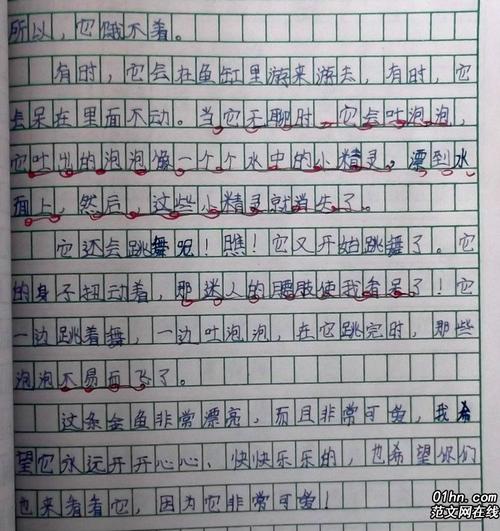 所以，它饿不着。
有时，它会在鱼缸里游来游去，有时，它
会呆在里面不动。当它无聊时，它会吐泡泡，
它吐出的泡泡像一个个水中的小精灵。漂到水
面上，然后，这些小精灵就消失了。
它还会跳舞呢！瞧！它又开始跳舞了。它
的身子扭动着，那迷人的腰肢使我看呆了！它
一边跳着舞，一边吐泡泡，在它跳完时，那些
泡泡不易而飞了。
这条金鱼非常漂亮，而且非常可爱，我希
望它永远开开心心、快快乐乐的，也希望你们
也来看看它，因为它非常可爱！
01hn.com
范文网在线